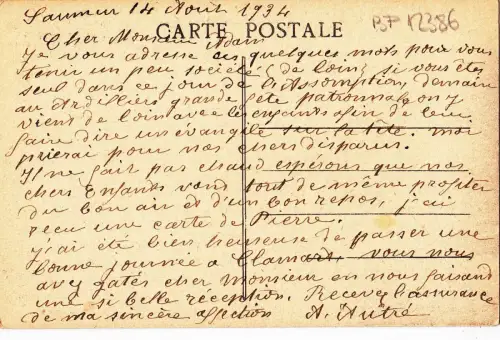 Saumur 14 Août 1934
BP 12386
CARTE POSTALE
Cher Monsieur Adam
Je vous adresse ces quelques mots pour vous
tenir un peu société (de loin) si vous êtes
seul dans ce jour de l'Assomption, demain
au Ardilliers grande fête patronnale on y
viens de loin avec les enfants afin de leur
faire dire un évangile sur la tête. moi
prierai pour nos chers disparus.
Il ne fait pas chaud espérons que nos
chers Enfants vont tout de même profiter
du bon air et d'un bon repos, j'ai
recu une carte de Pierre.
j'ai été bien heureuse de passer une
bonne journée a Clamart, vous nous
avez gatés cher Monsieur en nous faisant
une si belle réception. Recevez l'assurance
de ma sincère affection A. Autré